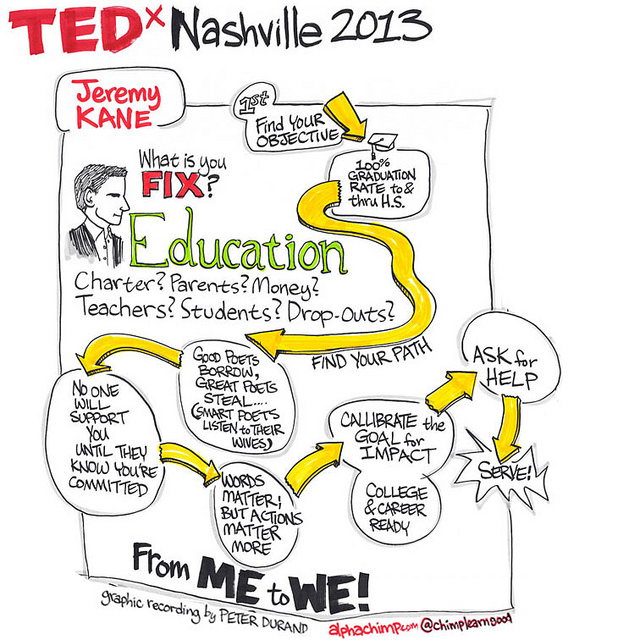 TEDx Nashville 2013
Jeremy
KANE
1st
Find YOUR
OBJECTIVE
100%
GRADUATION
RATE to &
thru H.S.
What is you
FIX?
Education
Charter? Parents? Money?
Teachers? Students? Drop-outs?
FIND YOUR PATH
GOOD POETS
BORROW,
GREAT POETS
STEAL....
(SMART POETS
LISTEN to THEIR
WIVES)
NO ONE
WILL
SUPPORT
YOU
UNTIL THEY
KNOW YOU'RE
COMMITTED
WORDS
MATTER;
BUT ACTIONS
MATTER
MORE
CALLIBRATE the
GOAL for
IMPACT
COLLEGE
& CAREER
READY
ASK for
HELP
SERVE!
From ME to WE!
graphic recording by PETER DURAND
alphachimp.com @chimplearngood